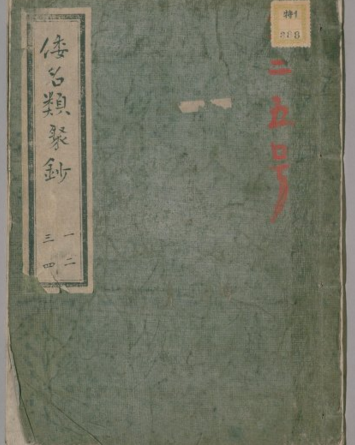 特1
888
二五号
倭名類聚鈔
一二
三四